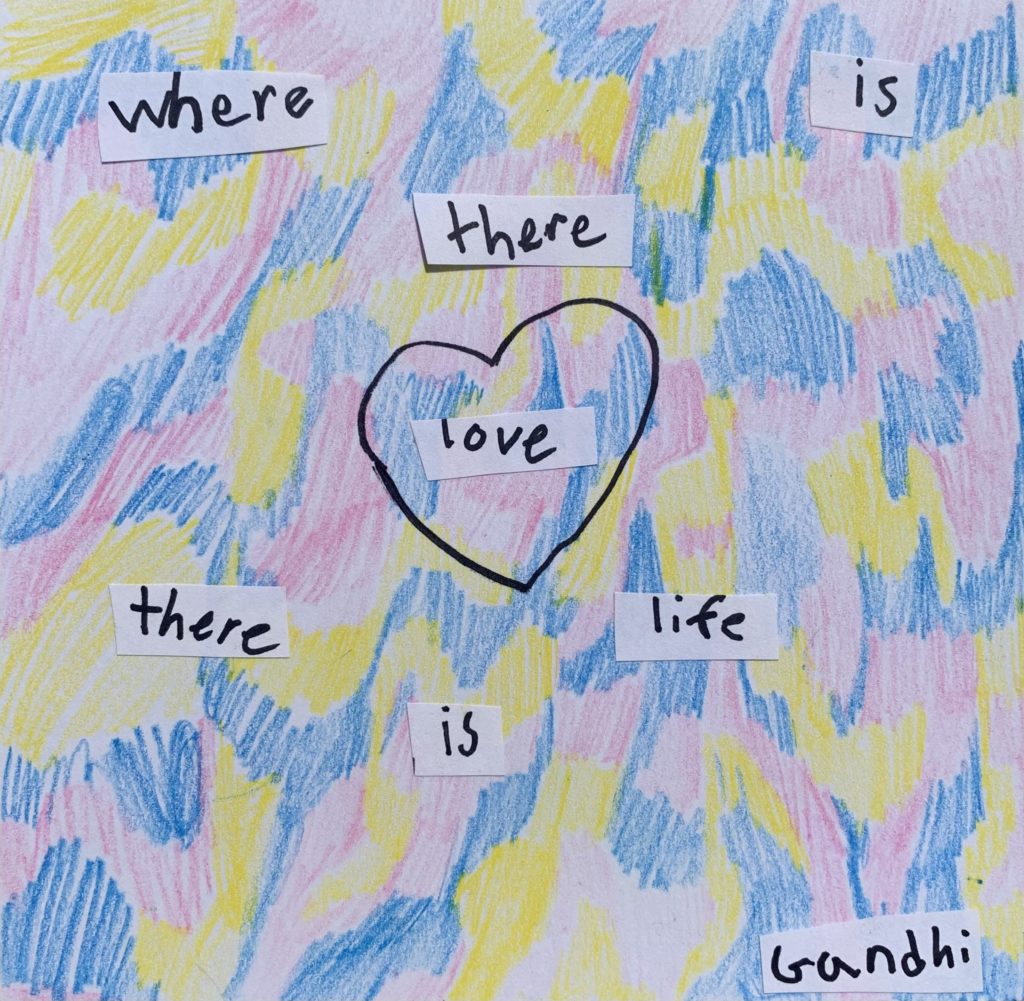 where is
there
love
there life
is
Gandhi